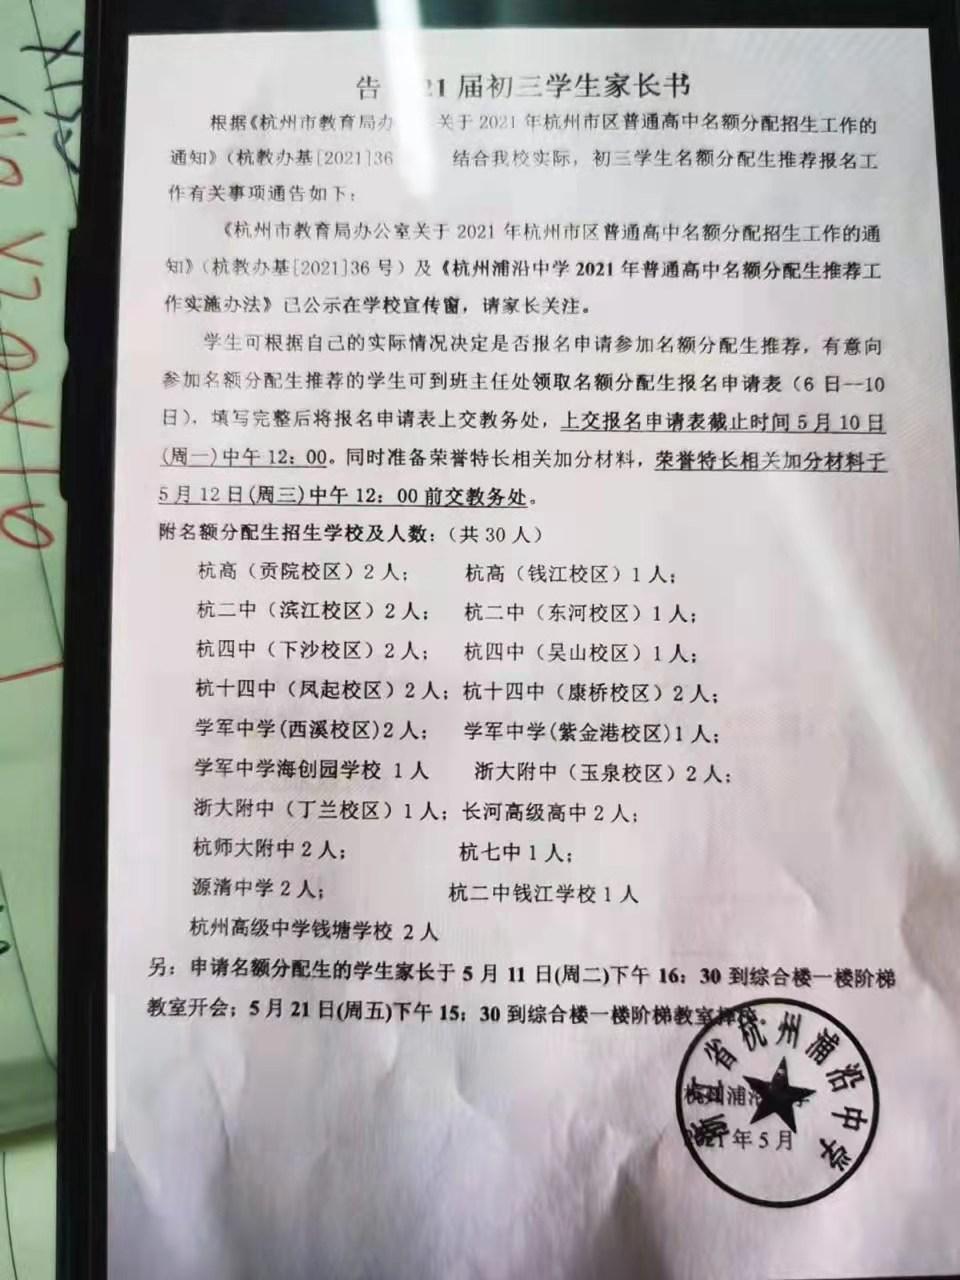 告 21届初三学生家长书
根据《杭州市教育局办 关于2021年杭州市区普通高中名额分配招生工作的
通知》（杭教办基[2021]36 结合我校实际，初三学生名额分配生推荐报名工
作有关事项通告如下：
《杭州市教育局办公室关于2021年杭州市区普通高中名额分配招生工作的通
知》（杭教办基[2021]36号）及《杭州浦沿中学2021年普通高中名额分配生推荐工
作实施办法》已公示在学校宣传窗，请家长关注。
学生可根据自己的实际情况决定是否报名申请参加名额分配生推荐，有意向
参加名额分配生推荐的学生可到班主任处领取名额分配生报名申请表（6日--10
日），填写完整后将报名申请表上交教务处，上交报名申请表截止时间5月10日
(周一)中午12：00。同时准备荣誉特长相关加分材料，荣誉特长相关加分材料于
5月12日(周三)中午12：00前交教务处。
附名额分配生招生学校及人数：（共30人）
杭高（贡院校区）2人； 杭高（钱江校区）1人；
杭二中（滨江校区）2人； 杭二中（东河校区）1人；
杭四中（下沙校区）2人； 杭四中（吴山校区）1人；
杭十四中（凤起校区）2人；杭十四中（康桥校区）2人；
学军中学(西溪校区)2人； 学军中学(紫金港校区)1人；
学军中学海创园学校 1人 浙大附中（玉泉校区）2人；
浙大附中（丁兰校区）1人；长河高级高中2人；
杭师大附中2人； 杭七中1人；
源清中学2人； 杭二中钱江学校1人
杭州高级中学钱塘学校 2人
另：申请名额分配生的学生家长于5月11日(周二)下午16：30到综合楼一楼阶梯
教室开会；5月21日(周五)下午15：30到综合楼一楼阶梯教室择校.
杭州浦沿中学
2021年5月
浙江省杭州浦沿中学